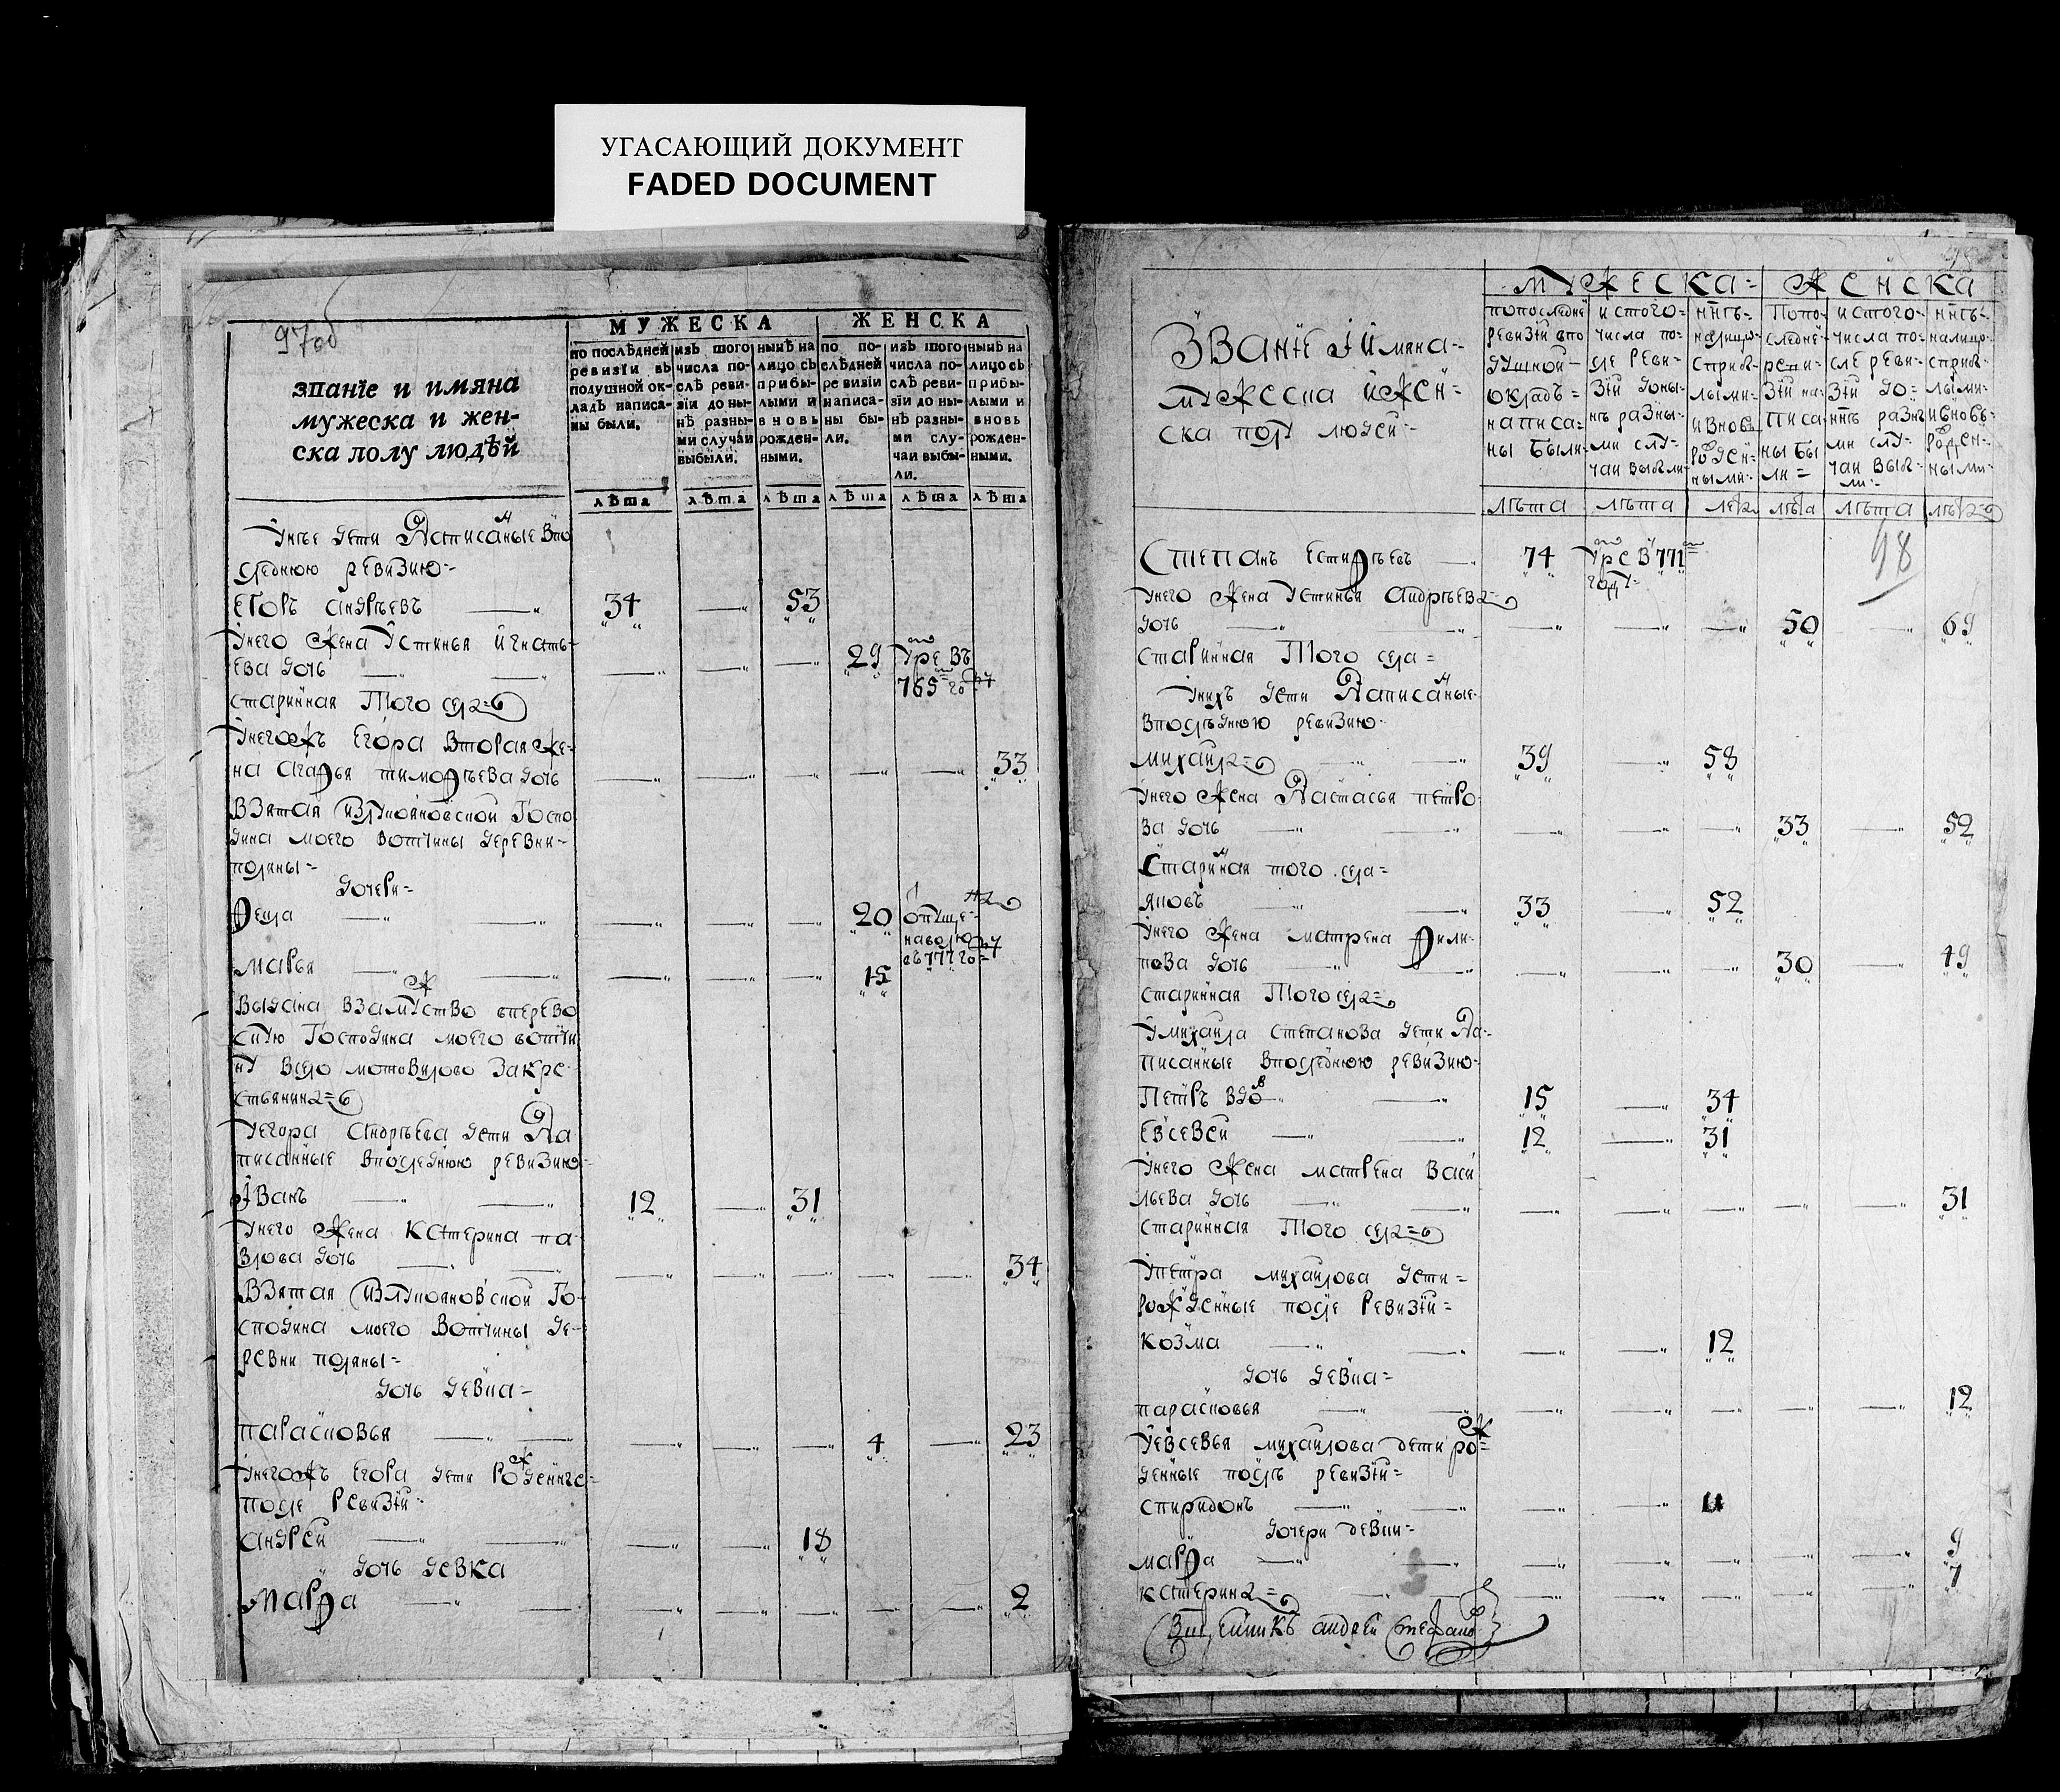 УГАСАЮЩИЙ ДОКУМЕНТ
FADED DOCUMENT
97 об
МУЖЕСКА
ЖЕНСКА
званїе и имяна
мужеска и жен-
ска полу людѣй
по послѣдней
ревизїи въ
подушной ок-
ладъ написа-
ны были.
изъ того
числа по-
слѣ реви-
зїи до ны-
нѣ разны-
ми случаи
выбыли.
нынѣ на
лицо съ
прибы-
лыми и
вновь
рожден-
ными.
по по-
слѣдней
ревизїи
написа-
ны бы-
ли.
изъ того
числа по-
слѣ реви-
зїи до ны-
нѣ разны-
ми слу-
чаи выбы-
ли.
нынѣ на
лицо съ
прибы-
лыми и
вновь
рожден-
ными.
лѣта лѣта лѣта лѣта лѣта лѣта
Унее дети написаные впо
следнюю ревизию
Егоръ андреевъ 34 53
Унего жена устинья игнать-
ева дочь 29 умре въ 765 го
старинная того села
Унегожъ Егора вторая же-
на агафья тимофѣева дочь 33
взятая излукояновской госпо
дина моего вотчины деревни
поляны
дочери
Фекла 20 отпуще-
на волю
въ 777 го
Марья 15
выдана взамужство вперево
скую господина моего вотчи
ну всело мотовилово закре
стьянина
Уегора андрѣева дети на
писанные впоследнюю ревизию
Iванъ 12 31
Унего жена катерина па
влова дочь 34
взятая излукояновской го-
сподина моего вотчины де-
ревни поляны
дочь девка
парасковья 4 23
Унегожъ Егора дети рожденные
после ревизїи
андрей 18
дочь девка
Марфа 2
МУЖЕСКА ЖЕНСКА
Званїе iимяна
мужеска ижен
ска полу людей
попоследне
ревизїи впо
душной
окладъ
написа
ны были
истого
числа по
сле реви
зїи доны
нѣ разны
ми слу
чаи выбыли
нынѣ
налицо
сприбы
лыми
ивновь
рожден
ными
попо
следне
реви
зїи на
писа
ны бы
ли
истого
числа по
сле реви
зїи до
нынѣ разны
ми слу
чаи выбы
ли
нынѣ
налицо
сприбы
лыми
ивновь
рожден
ными
лѣта лѣта лѣта лѣта лѣта лѣта
98
Степанъ естифѣевъ 74 умре в 771
году
Унего жена устинья андрѣева
дочь 50 69
старинная того села
Унихъ дети написаные
впослѣднюю ревизию
михаила 39 58
Унего жена настасья петро
ва дочь 33 52
Старинная того села
яковъ 33 52
Унего жена матрена фили
пова дочь 30 49
старинная того села
Умихаила степанова дети на
писанные впоследнюю ревизию
Петръ вдов 15 34
Евсевеи 12 31
Унего жена матрена васи
льева дочь 31
старинная того села
Упетра михаилова дети
рожденные после ревизїи
козма 12
дочь девка
парасковья 12
Уевсевья михаилова дети рож
денные послѣ ревизїи
спиридонъ 11
дочери девки
марфа 9
катерина 7
андрей Стефано